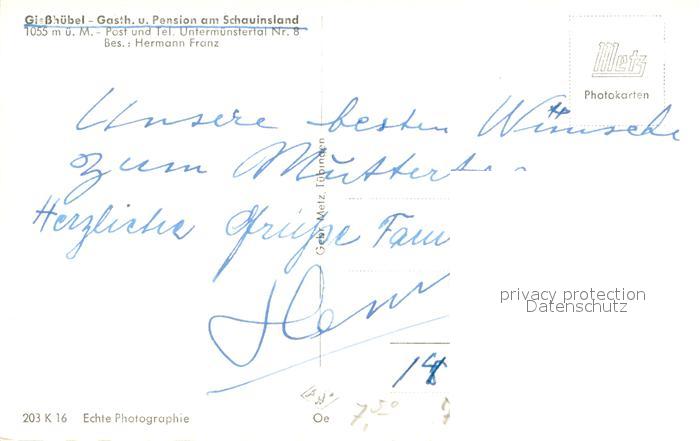 Gießhübel - Gasth. u. Pension am Schauinsland
1055 m ü. M. - Post und Tel. Untermünstertal Nr. 8
Bes.: Hermann Franz
Metz
Photokarten
Unsere besten Wünsche
zum Mutterta
Herzliche Grüße Fam
Gebr. Metz, Tübingen
privacy protection
Datenschutz
203 K 16 Echte Photographie
Oe
7,50